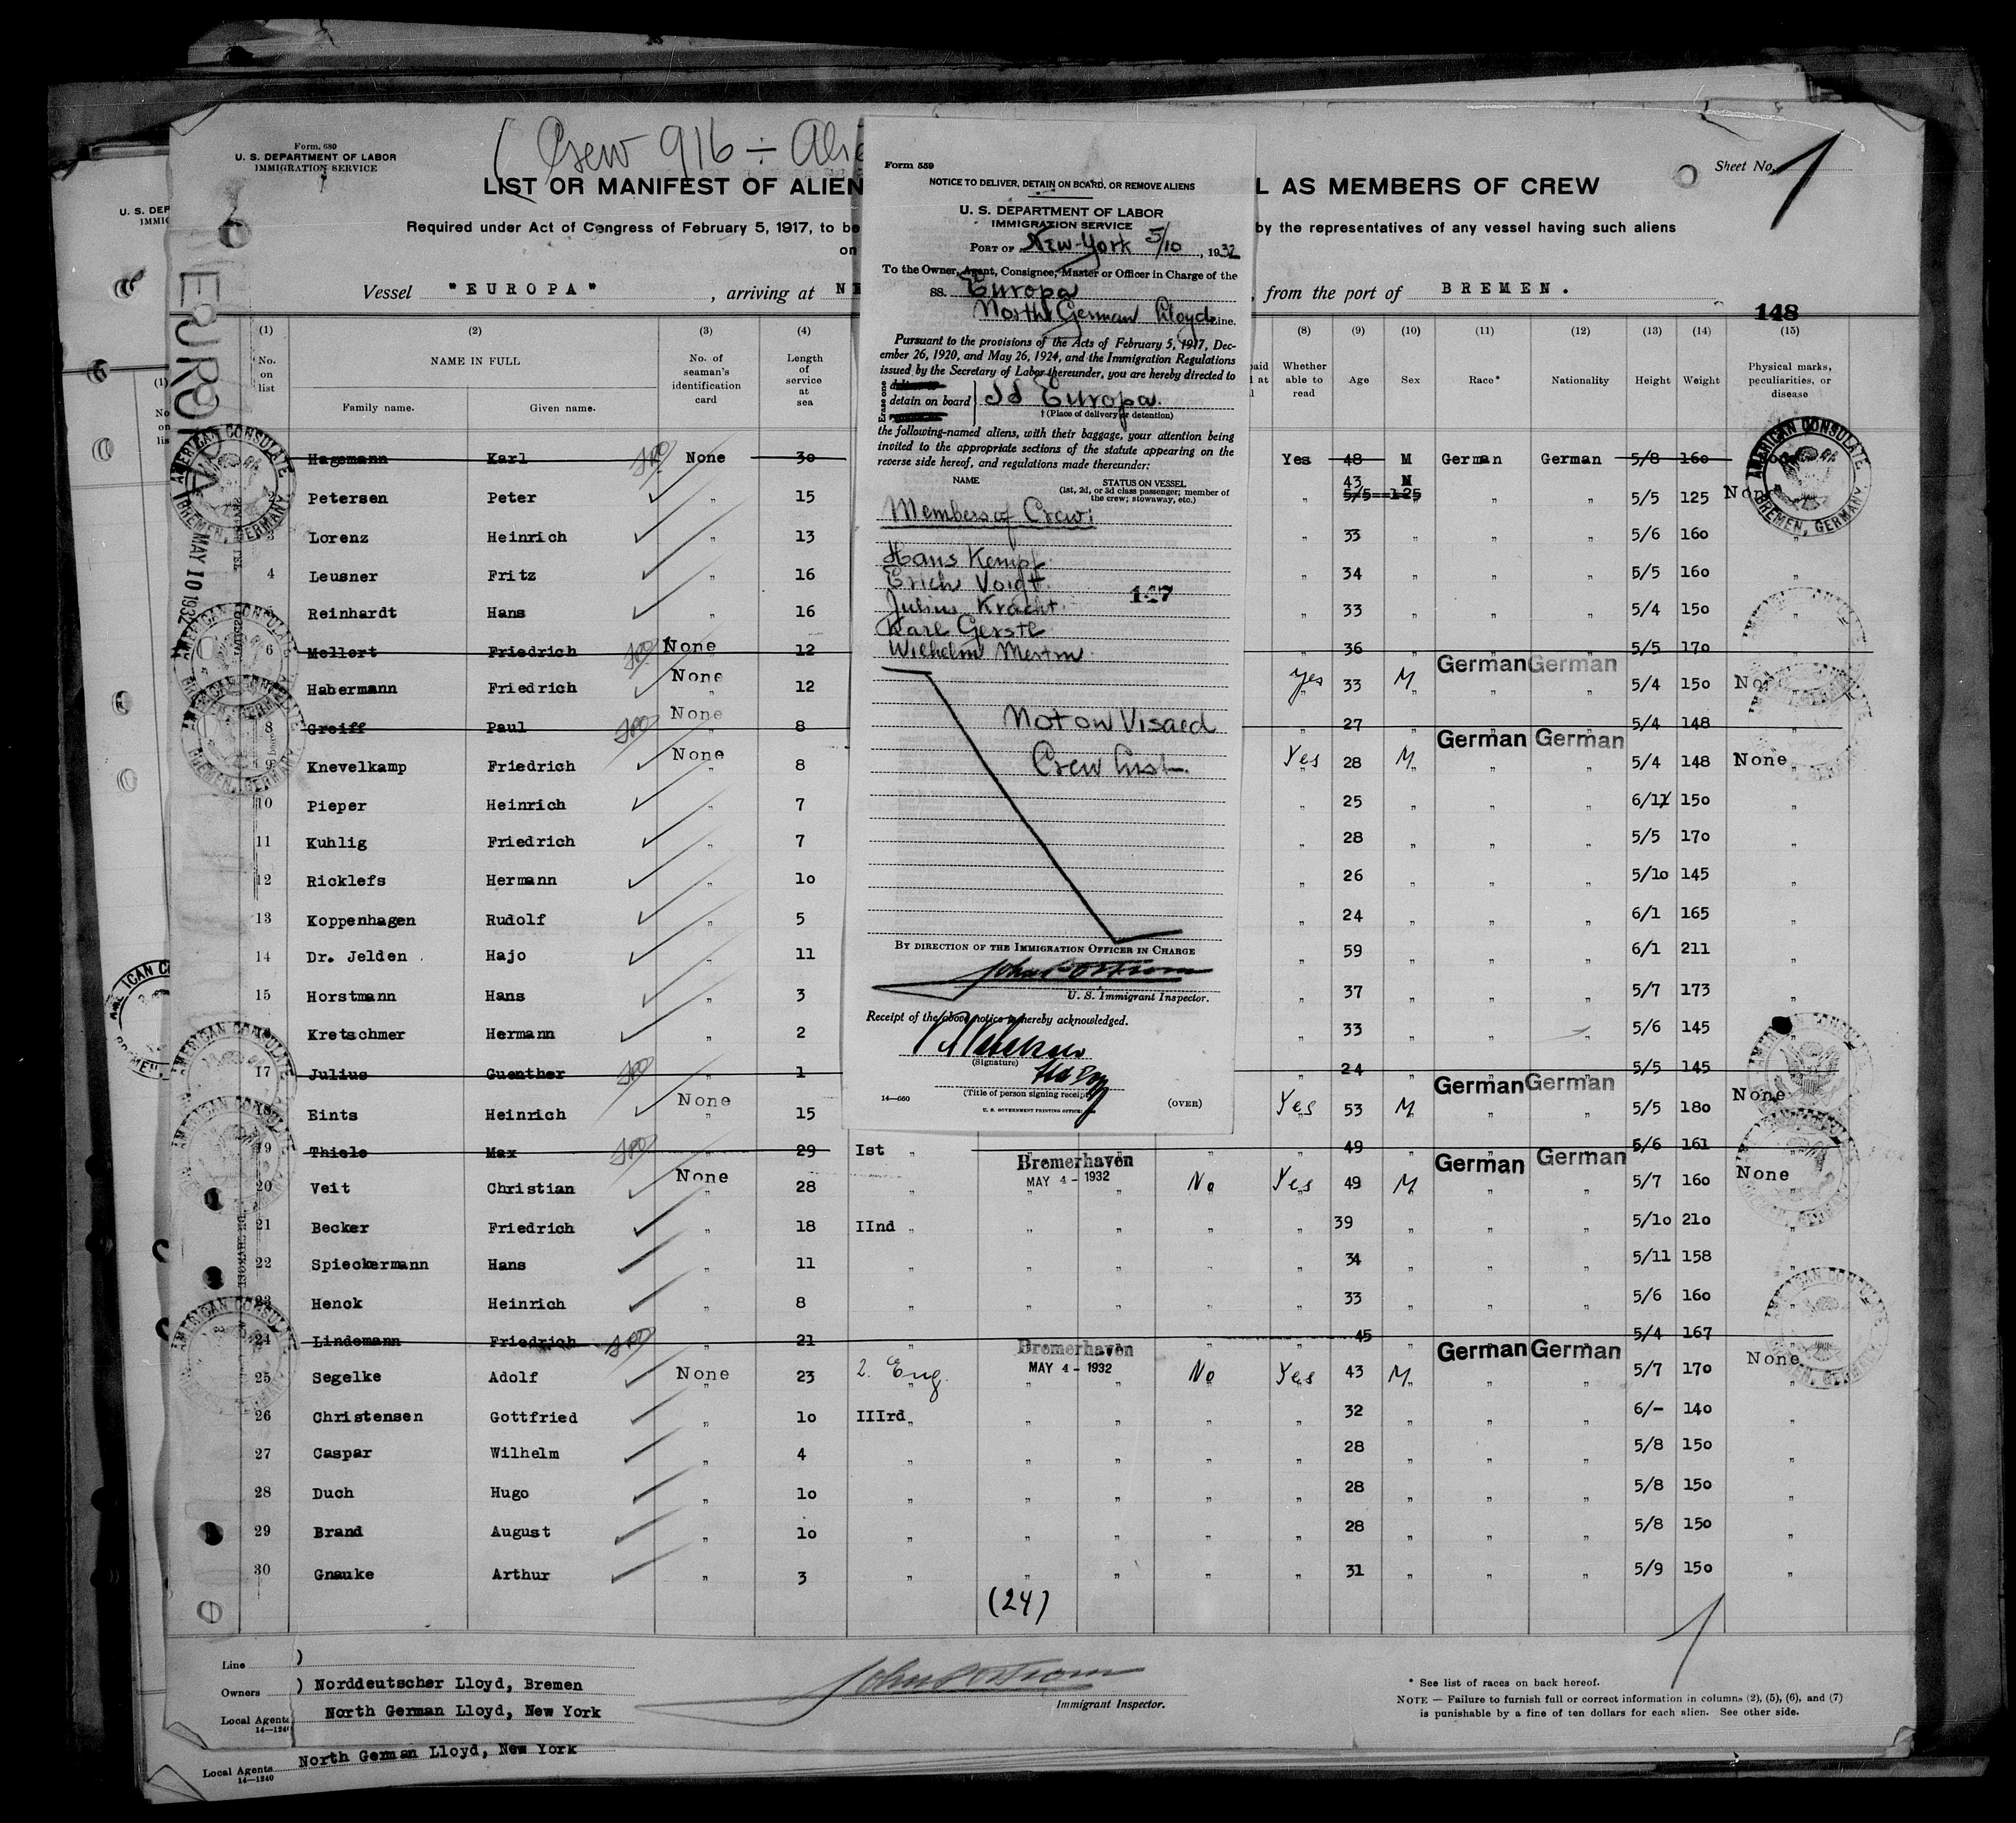 ( Crew 916 ÷
Form. 680
U. S. DEPARTMENT OF LABOR
IMMIGRATION SERVICE
Sheet No. 1
LIST OR MANIFEST OF ALIEN L AS MEMBERS OF CREW
Required under Act of Congress of February 5, 1917, to be by the representatives of any vessel having such aliens
on
Vessel "EUROPA" , arriving at NE , from the port of BREMEN.
148
EUROPA
MAY 10 1932
(1) (2) (3) (4) (8) (9) (10) (11) (12) (13) (14) (15)
No. on list NAME IN FULL Family name. Given name. No. of seaman's identification card Length of service at sea Whether able to read Age Sex Race* Nationality Height Weight Physical marks, peculiarities, or disease
AMERICAN CONSULATE BREMEN, GERMANY
Hagemann Karl None 30 Yes 48 M German German 5/8 160
2 Petersen Peter „ 15 „ 43 M 5/5 125 „ „ 5/5 125 None
3 Lorenz Heinrich „ 13 „ 33 „ „ „ 5/6 160 „
4 Leusner Fritz „ 16 „ 34 „ „ „ 5/5 160 „
5 Reinhardt Hans „ 16 „ 33 „ „ „ 5/4 150 „
6 Mellert Friedrich None 12 36 5/5 170
Habermann Friedrich None 12 Yes 33 M German German 5/4 150 None
8 Greiff Paul None 8 27 5/4 148
9 Knevelkamp Friedrich None 8 Yes 28 M German German 5/4 148 None
10 Pieper Heinrich „ 7 „ 25 „ „ „ 6/11 150 „
11 Kuhlig Friedrich „ 7 „ 28 „ „ „ 5/5 170 „
12 Ricklefs Hermann „ 10 „ 26 „ „ „ 5/10 145 „
13 Koppenhagen Rudolf „ 5 „ 24 „ „ „ 6/1 165 „
14 Dr. Jelden Hajo „ 11 „ 59 „ „ „ 6/1 211 „
15 Horstmann Hans „ 3 „ 37 „ „ „ 5/7 173 „
Kretschmer Hermann „ 2 „ 33 „ „ „ 5/6 145
17 Julius Guenther „ 1 „ 24 „ 5/5 145
18 Eints Heinrich None 15 Yes 53 M German German 5/5 180 None
19 Thiele Max „ 29 Ist „ „ 49 „ 5/6 161
20 Veit Christian None 28 „ Bremerhaven MAY 4 - 1932 No Yes 49 M German German 5/7 160 None
21 Becker Friedrich „ 18 IInd „ „ „ „ „ 39 „ „ „ 5/10 210 „
22 Spieckermann Hans „ 11 „ „ „ „ „ 34 „ „ „ 5/11 158 „
23 Henck Heinrich „ 8 „ „ „ „ „ 33 „ „ „ 5/6 160 „
24 Lindemann Friedrich „ 21 „ 45 „ 5/4 167
25 Segelke Adolf None 23 2. Eng. Bremerhaven MAY 4 - 1932 No Yes 43 M German German 5/7 170 None
26 Christensen Gottfried „ 10 IIIrd „ „ „ „ „ 32 „ „ „ 6/- 140 „
27 Caspar Wilhelm „ 4 „ „ „ „ „ 28 „ „ „ 5/8 150 „
28 Duch Hugo „ 10 „ „ „ „ „ 28 „ „ „ 5/8 150 „
29 Brand August „ 10 „ „ „ „ „ 28 „ „ „ 5/8 150 „
30 Gnauke Arthur „ 3 „ „ „ „ „ 31 „ „ „ 5/9 150 „
(24)
Line )
Owners ) Norddeutscher Lloyd, Bremen
Local Agents North German Lloyd, New York
14—1240
Immigrant Inspector.
* See list of races on back hereof.
NOTE — Failure to furnish full or correct information in columns (2), (5), (6), and (7)
is punishable by a fine of ten dollars for each alien. See other side.
Local Agents North German Lloyd, New York
14—1240
Form 559
NOTICE TO DELIVER, DETAIN ON BOARD, OR REMOVE ALIENS
U. S. DEPARTMENT OF LABOR
IMMIGRATION SERVICE
PORT OF New-York 5/10, 1932
To the Owner, Agent, Consignee, Master or Officer in Charge of the
SS. Europa
North German Lloyd Line.
Pursuant to the provisions of the Acts of February 5, 1917, Dec-
ember 26, 1920, and May 26, 1924, and the Immigration Regulations
issued by the Secretary of Labor thereunder, you are hereby directed to
Erase one
detain on board SS Europa.
† (Place of delivery or detention)
the following-named aliens, with their baggage, your attention being
invited to the appropriate sections of the statute appearing on the
reverse side hereof, and regulations made thereunder:
NAME STATUS ON VESSEL
(1st, 2d, or 3d class passenger; member of
the crew; stowaway, etc.)
Members of Crew:
Hans Kempf
Erich Voigt.
Julius Kracht. 147
Karl Gerstl
Wilhelm Merten
Not on Visaed
Crew List.
BY DIRECTION OF THE IMMIGRATION OFFICER IN CHARGE
U. S. Immigrant Inspector.
Receipt of the above notice is hereby acknowledged.
(Signature)
(Title of person signing receipt)
14—660
U. S. GOVERNMENT PRINTING OFFICE
(OVER)